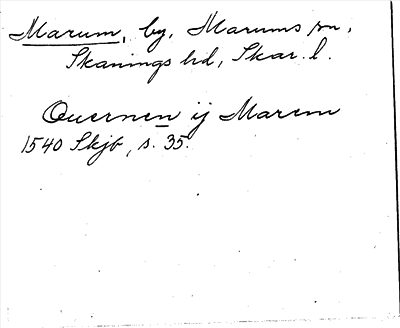 Marum, by, Marums sn,
Skånings hd, Skar. l.
Quernen ij Marem
1540 Skjb, s. 35.